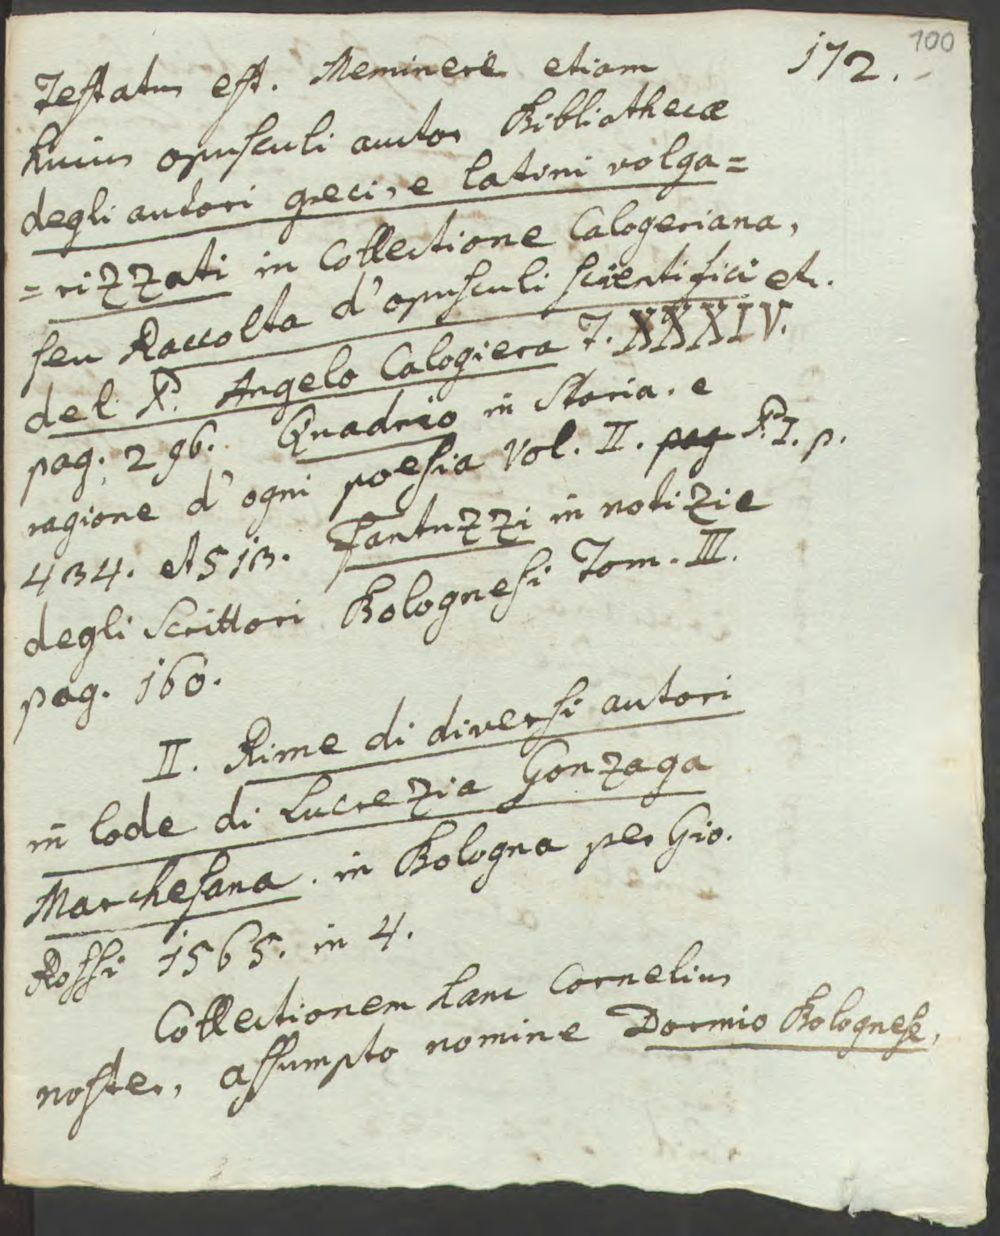 100
172.
Testatus est. Meminere etiam
huius opusculi auctor Bibliothecæ
degli autori greci, e latini volga=
=rizzati in Collectione Calogeriana,
seu Raccolta d'opusculi scientifici etc.
del P. Angelo Calogiera T. XXXIV.
pag. 296. Quadrio in Storia. e
ragione d'ogni poesia Vol. II. pag P. I. p.
434. et 513. Fantuzzi in notizie
degli Scrittori Bolognesi Tom. III.
pag. 160.
II. Rime di diversi autori
in lode di Lucrezia Gonzaga
Marchesana. in Bologna per Gio.
Rossi 1565. in 4.
Collectionem hanc Cornelius
noster, assumpto nomine Dormio Bolognese,